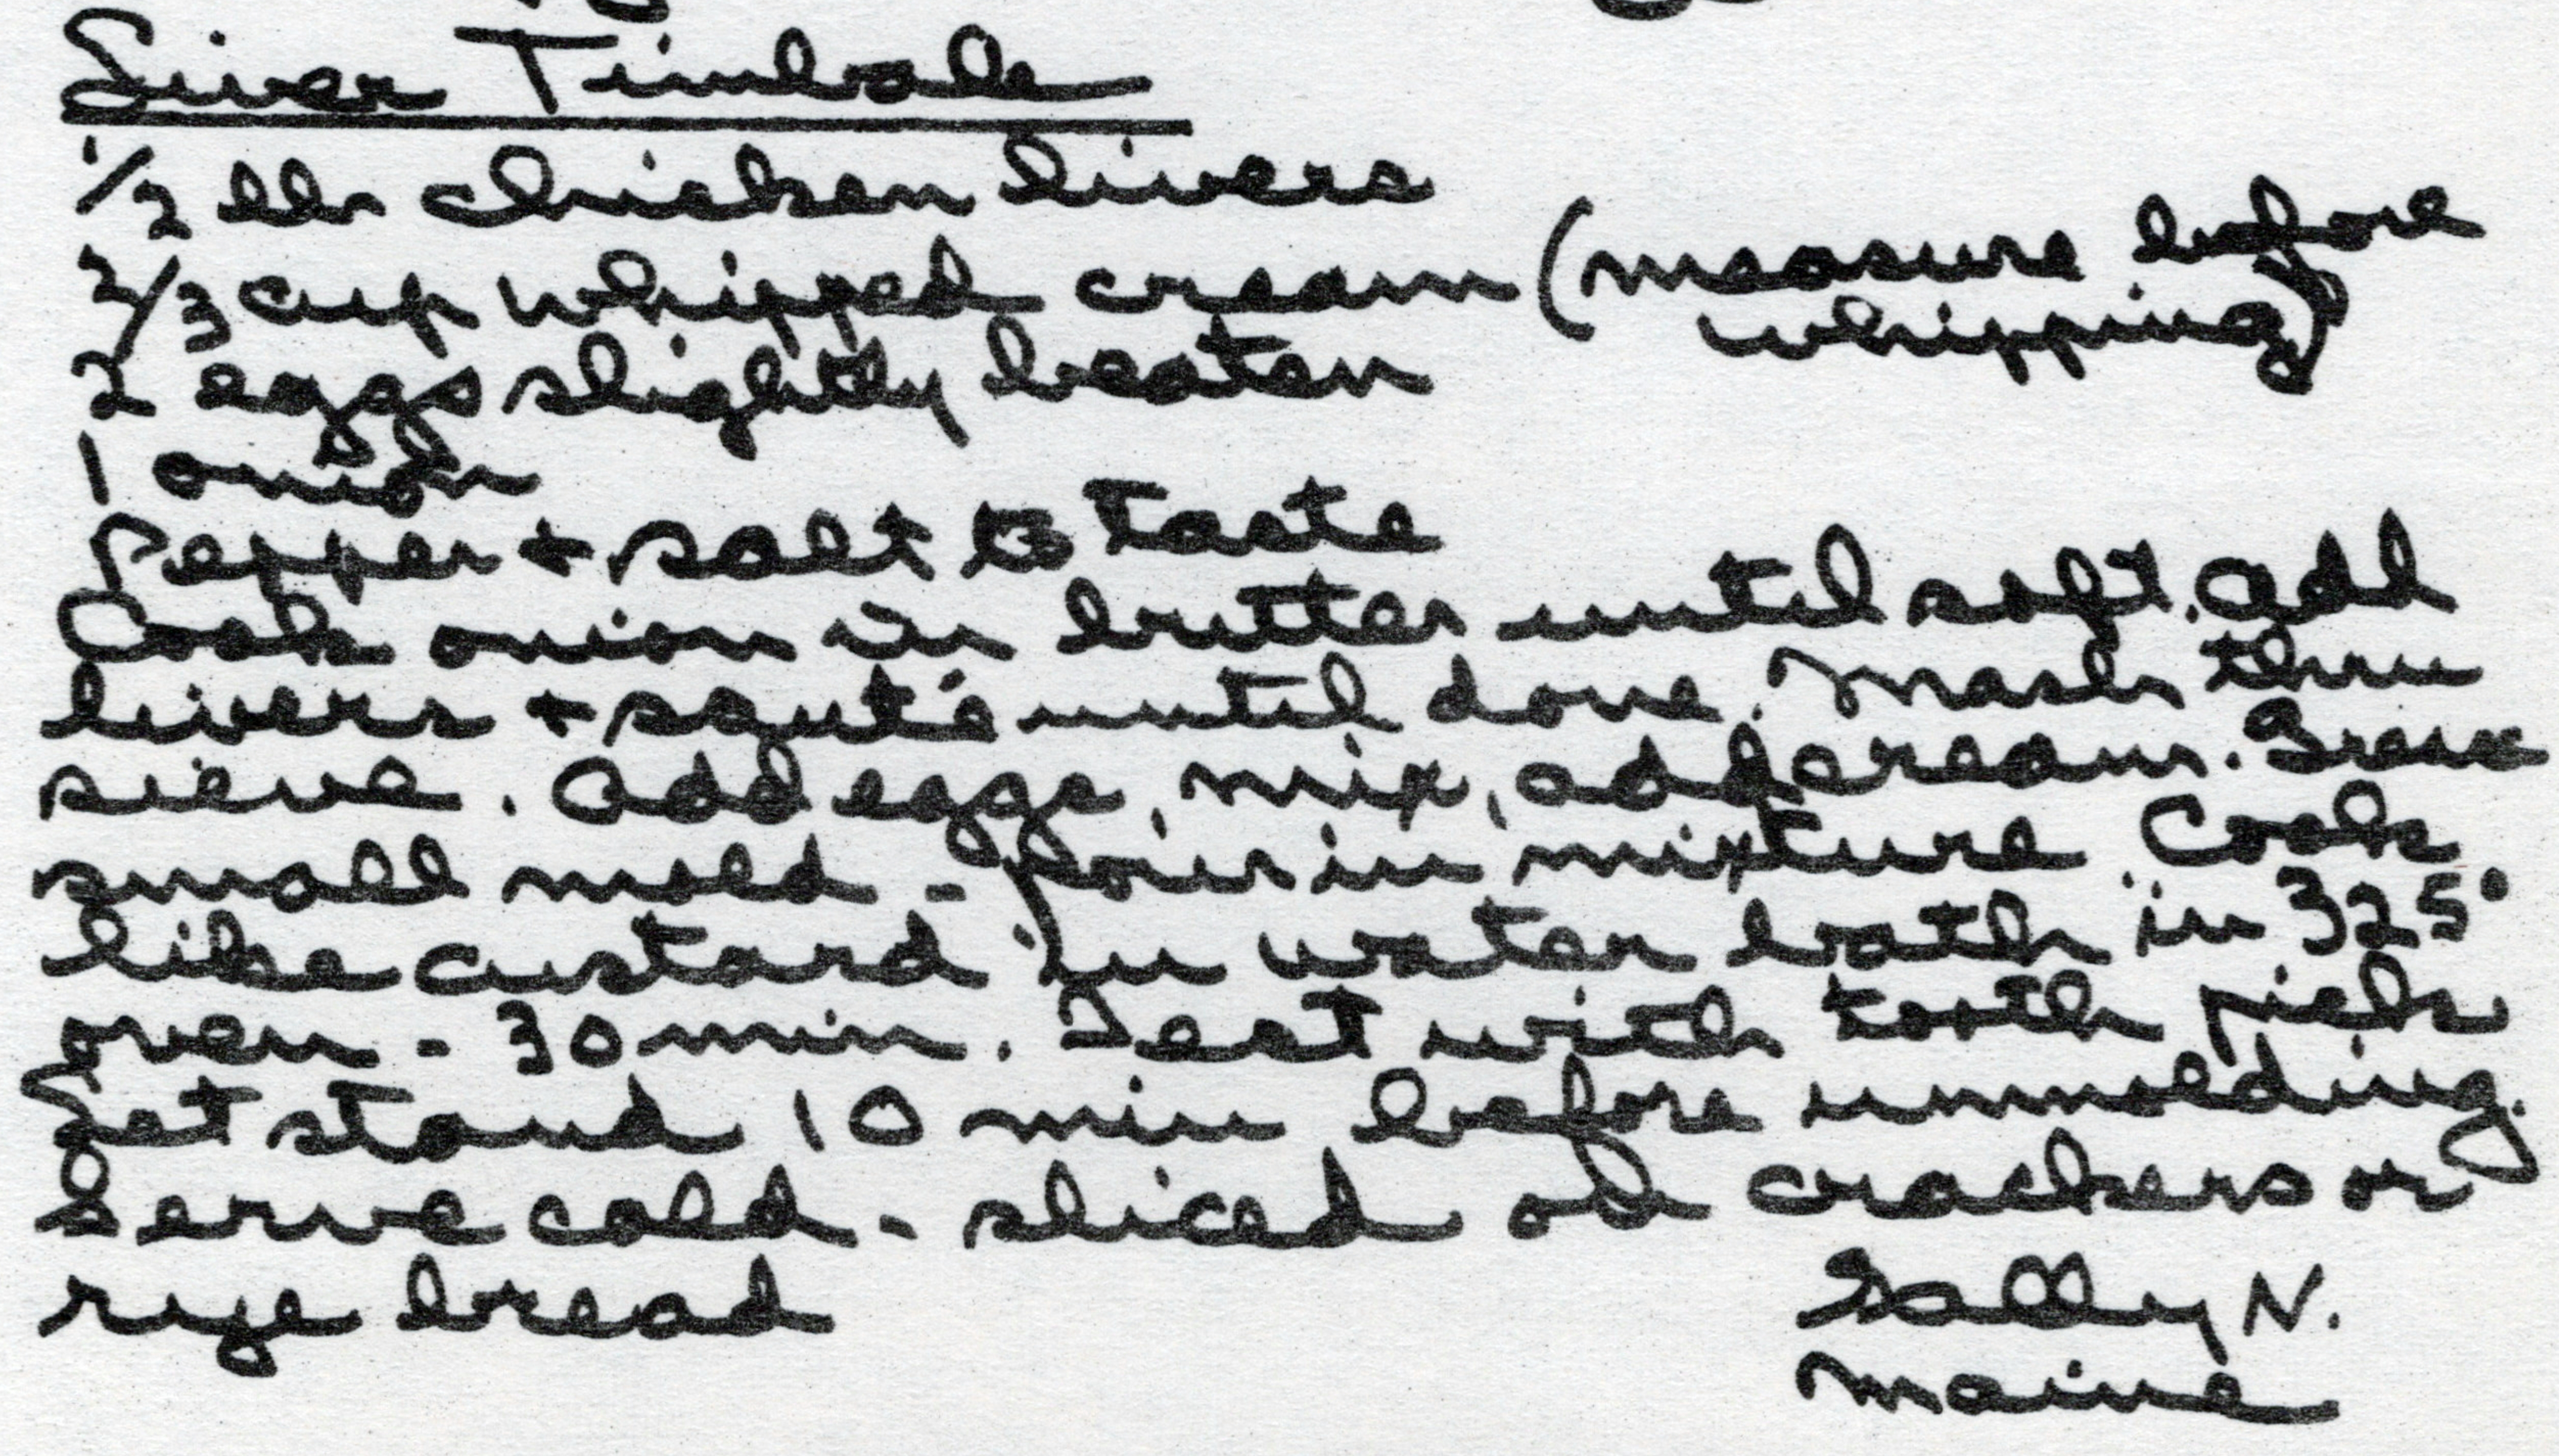 Liver Timbale
1/2 lb chicken livers
2/3 cup whipped cream (measure before
whipping)
2 eggs slightly beaten
1 onion
Pepper + salt to taste
Cook onion in butter until soft. Add
livers + sauté until done. Mash thru
sieve. Add eggs, mix, add cream. Grease
small mold - pour in mixture. Cook
like custard in water bath in 325°
oven - 30 min. Test with tooth pick
Let stand 10 min before unmolding.
Serve cold - sliced on crackers or
rye bread
Sally N.
Maine